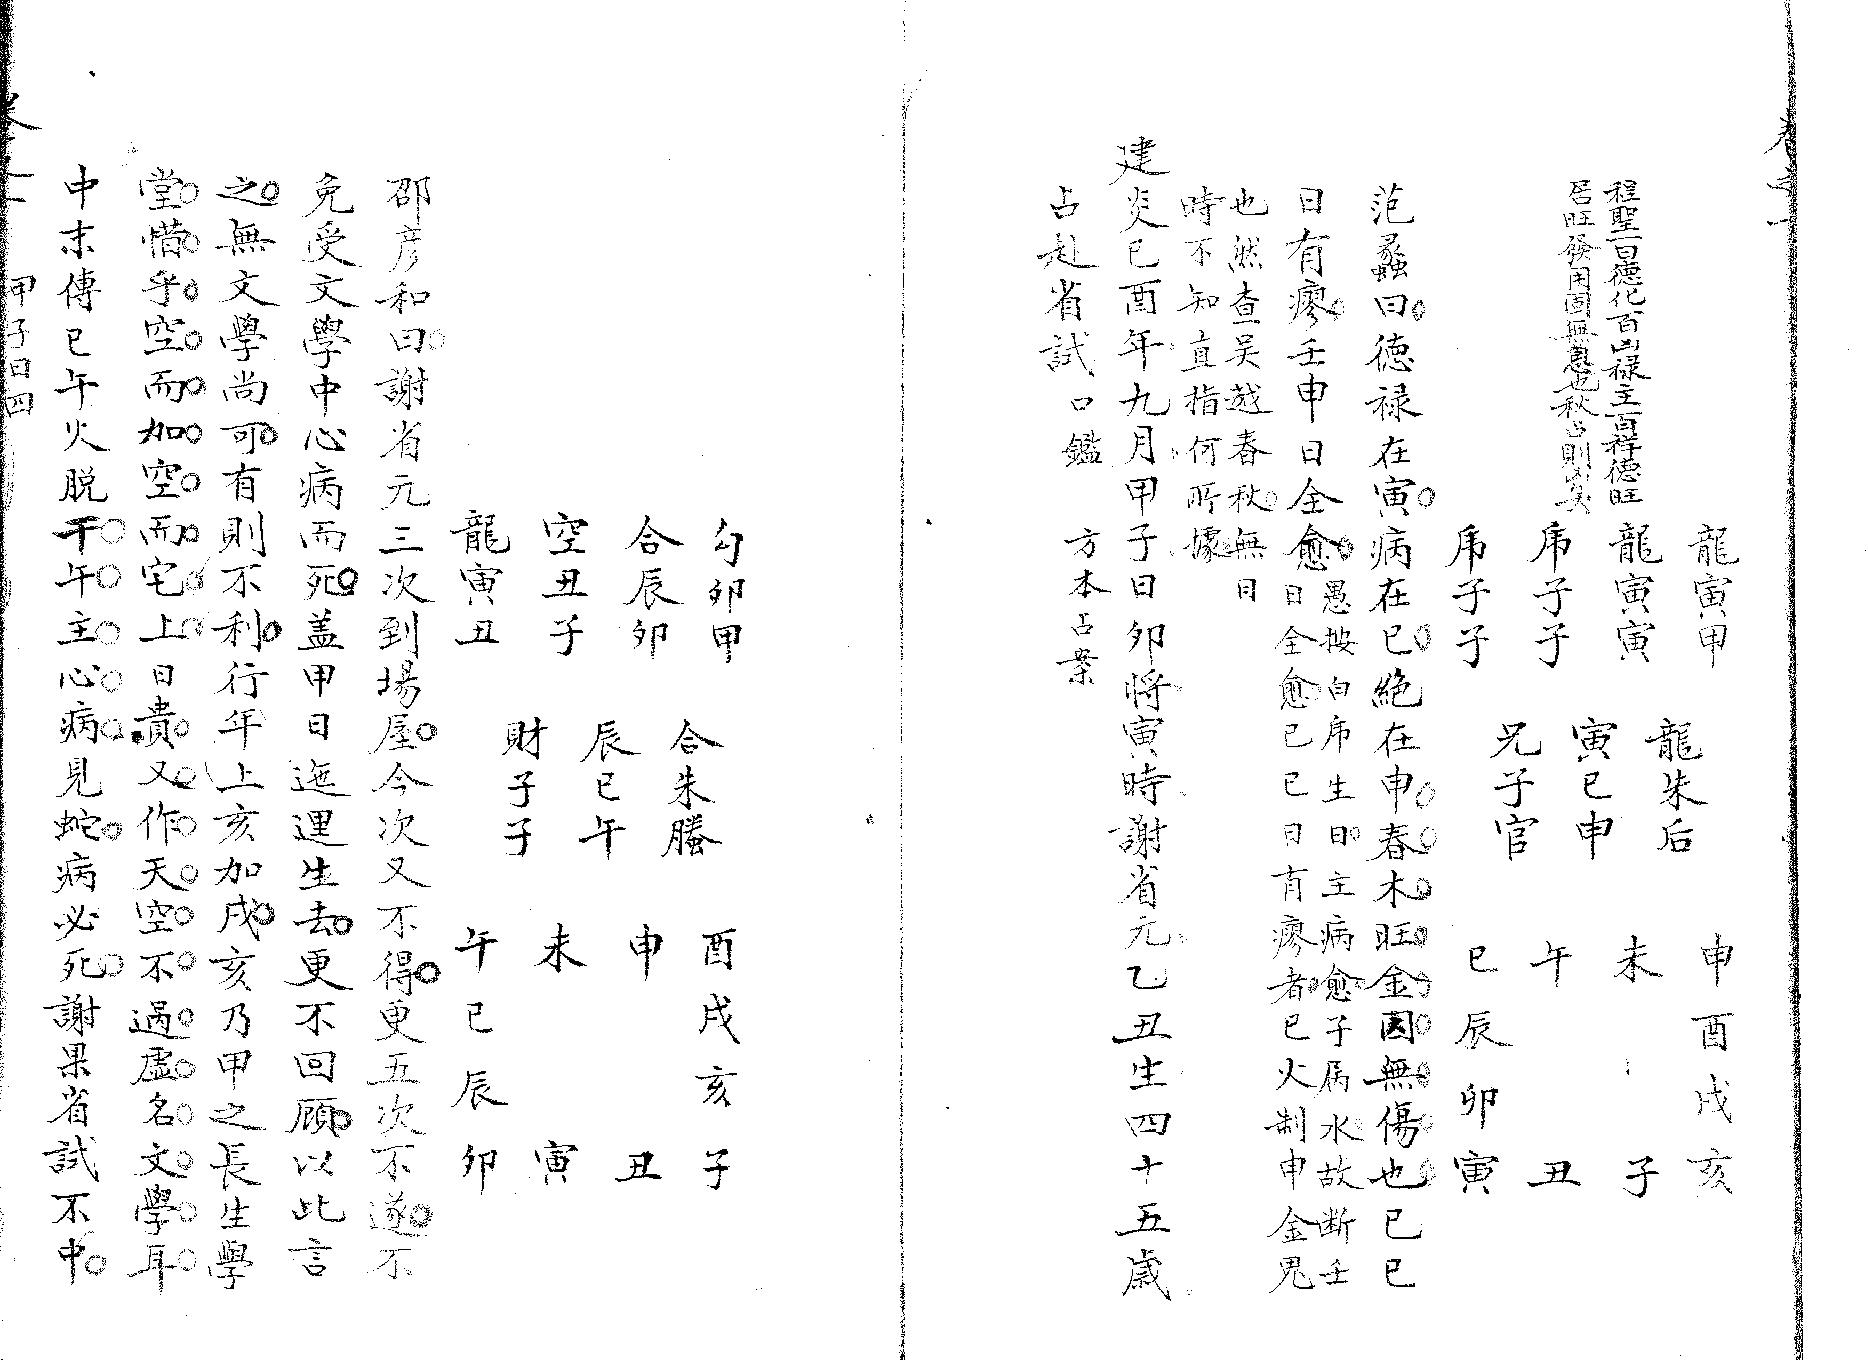 卷之一
程聖百德化百凶禄主百祥德旺
居旺發用固無患也秋占則異
龍寅甲
龍寅寅
席子子
席子子
龍朱后
寅巳申
兄子官
申酉戌亥
未 子
午 丑
巳辰卯寅
范蠡曰德禄在寅病在巳絕在申春木旺金囚無傷也巳巳
日有瘳壬申日全愈
愚按白席生日主病愈子屬水故斷壬
日全愈巳巳日有瘳者巳火制申金鬼
也然查吴越春秋無日
時不知直指何所據
建炎巳酉年九月甲子日卯將寅時謝省元乙丑生四十五歲
占赴省試 口鑑 方本占案
勾卯甲
合辰卯
空丑子
龍寅丑
合朱螣
辰巳午
財子子
酉戌亥子
申 丑
未 寅
午巳辰卯
邵彦和曰謝省元三次到場屋今次又不得更五次不遂不
免受文學中心病而死盖甲日迤逦生去更不回顧以此言
之無文學尚可有則不利行年上亥加戌亥乃甲之長生學
堂惜乎空而加空而宅上日貴又作天空不過虛名文學耳
中末傳巳午火脱干午主心病見蛇病必死謝果省試不中
甲子日四